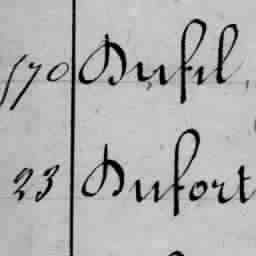 170 Dufil
23 Dufort